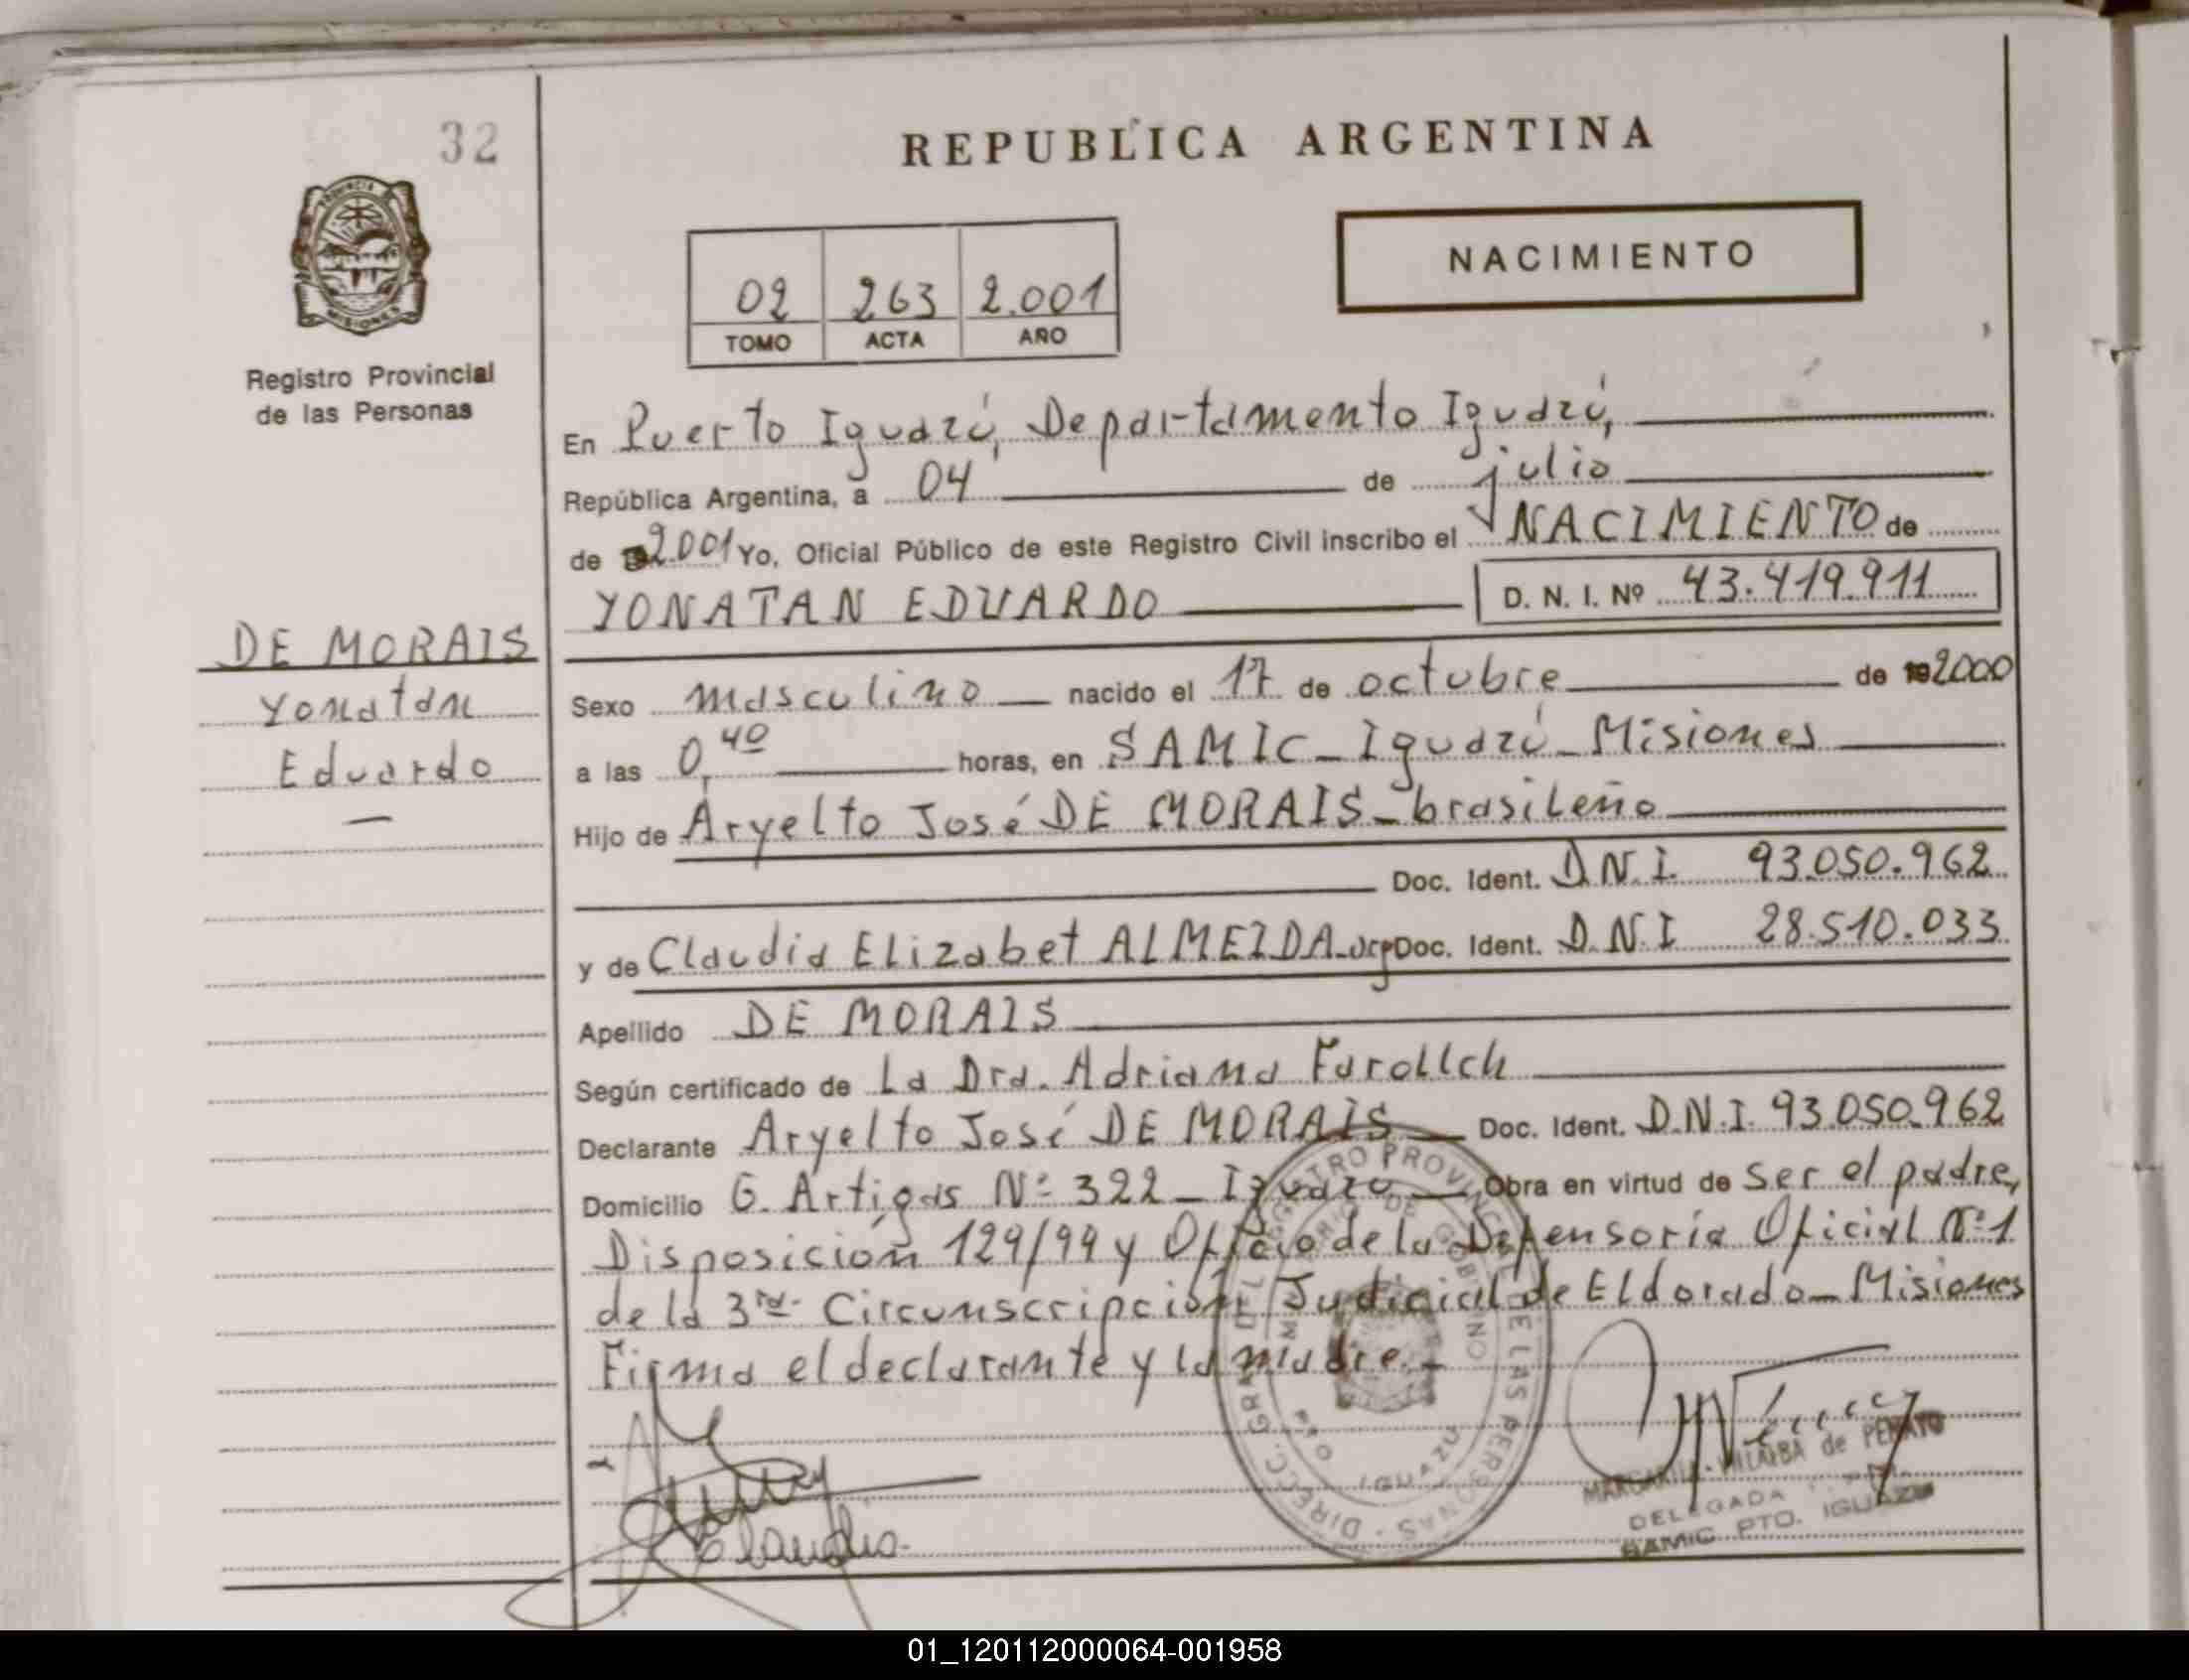 32
REPUBLICA ARGENTINA
PROVINCIA DE
MISIONES
NACIMIENTO
02 263 2.001
TOMO ACTA AÑO
Registro Provincial
de las Personas
En Puerto Iguazú, Departamento Iguazú,
República Argentina, a 04 de julio
de 2.001 Yo, Oficial Público de este Registro Civil inscribo el NACIMIENTO de
YONATAN EDUARDO D. N. I. Nº 43.419.911
DE MORAIS
Yonatan
Eduardo
—
Sexo masculino nacido el 17 de octubre de 192000
a las 0,40 horas, en SAMIC - Iguazú - Misiones
Hijo de Aryelto José DE MORAIS - brasileño
Doc. Ident. D.N.I. 93.050.962
y de Claudia Elizabet ALMEIDA - arg Doc. Ident. D.N.I 28.510.033
Apellido DE MORAIS
Según certificado de La Dra. Adriana
Declarante Aryelto José DE MORAIS Doc. Ident. D.N.I. 93.050.962
Domicilio G. Artigas Nº 322 - Iguazú Obra en virtud de ser el padre,
Disposición 129/99 y Oficio de la Defensoría Oficial Nº 1
de la 3ra. Circunscripción Judicial de Eldorado - Misiones
Firma el declarante y la madre. -
Claudia
DIRECC. GRAL. DEL REGISTRO PROVINCIAL DE LAS PERSONAS
MINISTERIO DE GOBIERNO
PTO IGUAZU
MARGARITA VILLALBA de
DELEGADA
SAMIC PTO. IGUAZU
01_120112000064-001958